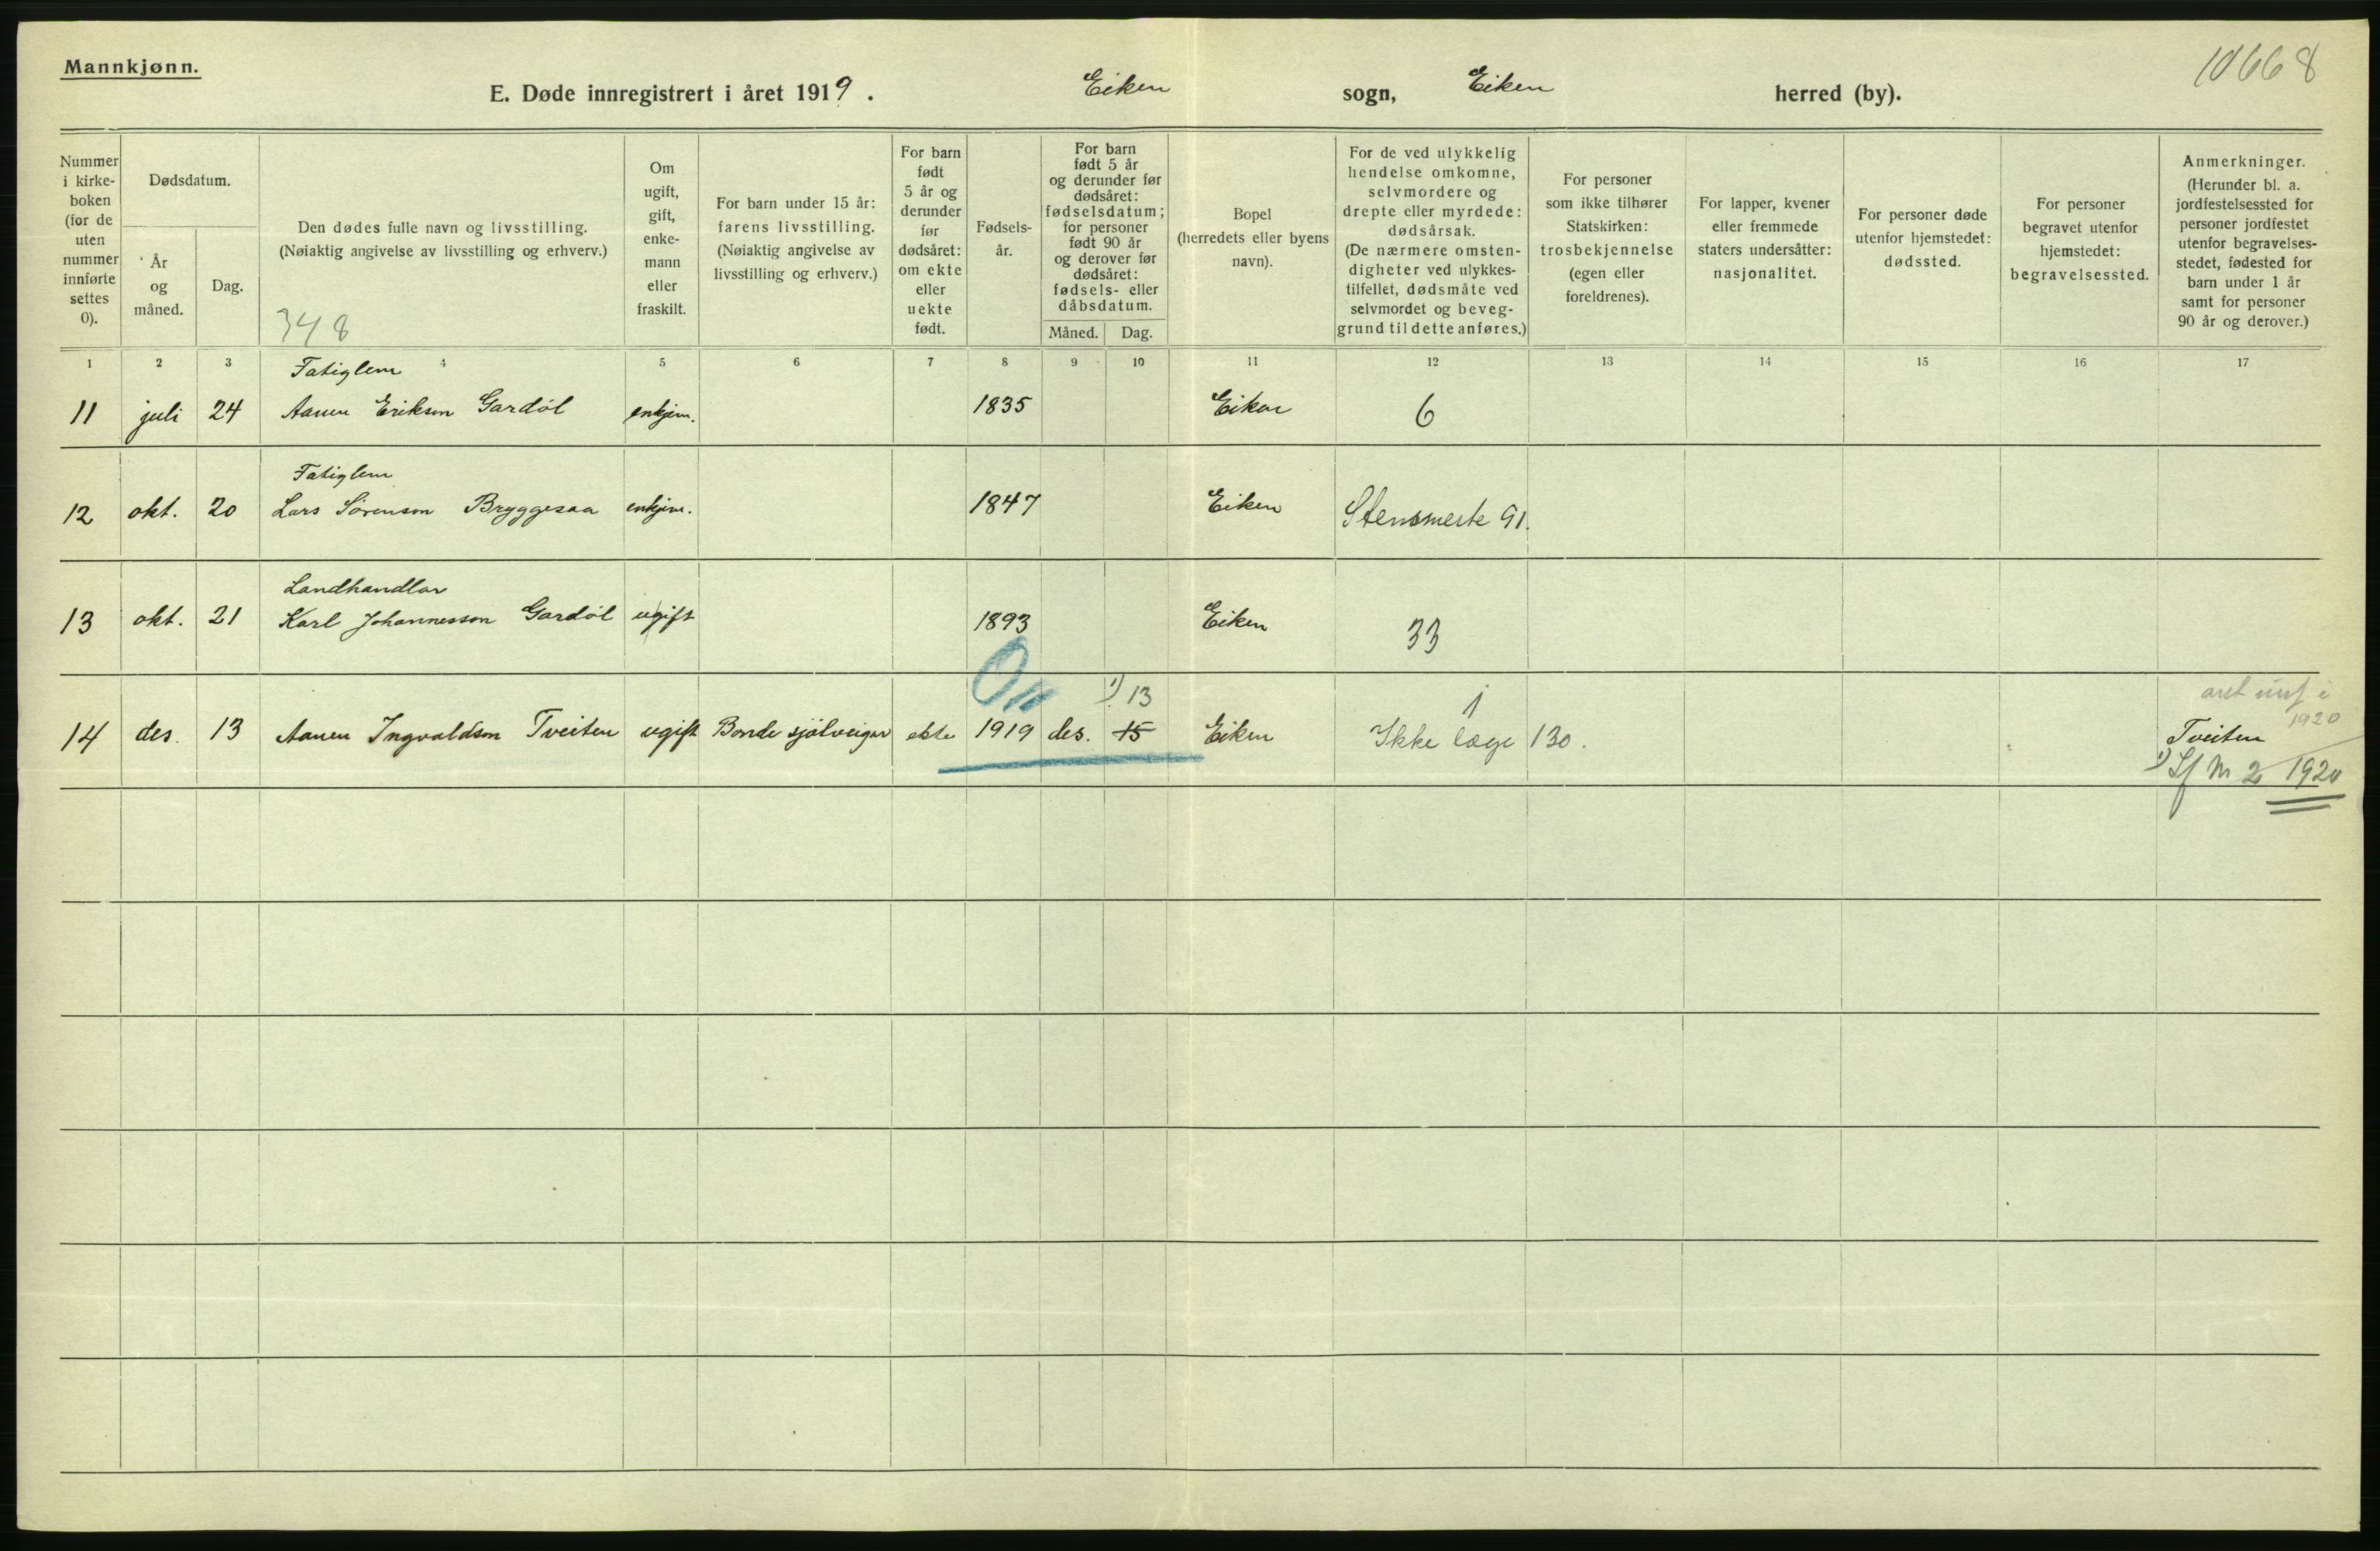 Mannkjønn.
10668
E. Døde innregistrert i året 1919. Eiken sogn, Eiken herred (by).
Nummer i kirke-boken (for de uten nummer innførte settes 0).
Dødsdatum.
År og måned.
Dag.
Den dødes fulle navn og livsstilling.
(Nøiaktig angivelse av livsstilling og erhverv.)
348
Om ugift, gift, enke-mann eller fraskilt.
For barn under 15 år: farens livsstilling. (Nøiaktig angivelse av livsstilling og erhverv.)
For barn født 5 år og derunder før dødsåret: om ekte eller uekte født.
Fødsels-år.
For barn født 5 år og derunder før dødsåret: fødselsdatum; for personer født 90 år og derover før dødsåret: fødsels- eller dåbsdatum.
Måned. Dag.
Bopel (herredets eller byens navn).
For de ved ulykkelig hendelse omkomne, selvmordere og drepte eller myrdede: dødsårsak. (De nærmere omsten-digheter ved ulykkes-tilfellet, dødsmåte ved selvmordet og beveg-grund til dette anføres.)
For personer som ikke tilhører Statskirken: trosbekjennelse (egen eller foreldrenes).
For lapper, kvener eller fremmede staters undersåtter: nasjonalitet.
For personer døde utenfor hjemstedet: dødssted.
For personer begravet utenfor hjemstedet: begravelsessted.
Anmerkninger. (Herunder bl. a. jordfestelsessted for personer jordfestet utenfor begravelses-stedet, fødested for barn under 1 år samt for personer 90 år og derover.)
1 2 3 4 5 6 7 8 9 10 11 12 13 14 15 16 17
Fatiglem
11 juli 24 Aanen Erikson Gardöl enkjem. 1835 Eiken 6
Fatiglem
12 okt. 20 Lars Sörenson Bryggesaa enkjem. 1847 Eiken Stensmerte 91.
Landhandlar
13 okt. 21 Karl Johannesson Gardöl ugift 1893 Eiken 33
1) 13 1 1920
14 des. 13 Aanen Ingvaldson Tveiten ugift Bonde sjölveigar ekte 1919 des. 15 Eiken Ikke læge 130. Tveiten
1) Sf M 2 1920